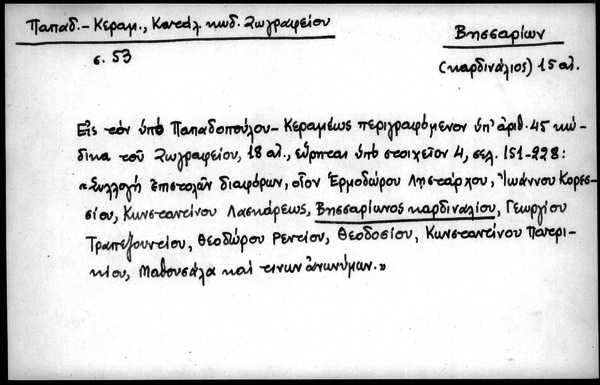 Παπαδ.-Κεραμ., Κατάλ κωδ. Ζωγραφείου
σ. 53
Βησσαρίων
(καρδινάλιος) 15 αἰ.
Εἰς τὸν ὑπὸ Παπαδοπούλου-Κεραμέως περιγραφόμενον ὑπ' ἀριθ. 45 κώ-
δικα τοῦ Ζωγραφείου, 18 αἰ., εὕρηται ὑπὸ στοιχεῖον 4, σελ. 151-228:
«Συλλογὴ ἐπιστολῶν διαφόρων, οἷον Ἑρμοδώρου Ληστάρχου, Ἰωάννου Κορεσ-
σίου, Κωνσταντίνου Λασκάρεως, Βησσαρίωνος καρδιναλίου, Γεωργίου
Τραπεζουντίου, Θεοδώρου Ρεντίου, Θεοδοσίου, Κωνσταντίνου Πατρι-
κίου, Μαθουσάλα καὶ τινων ἀνωνύμων.»